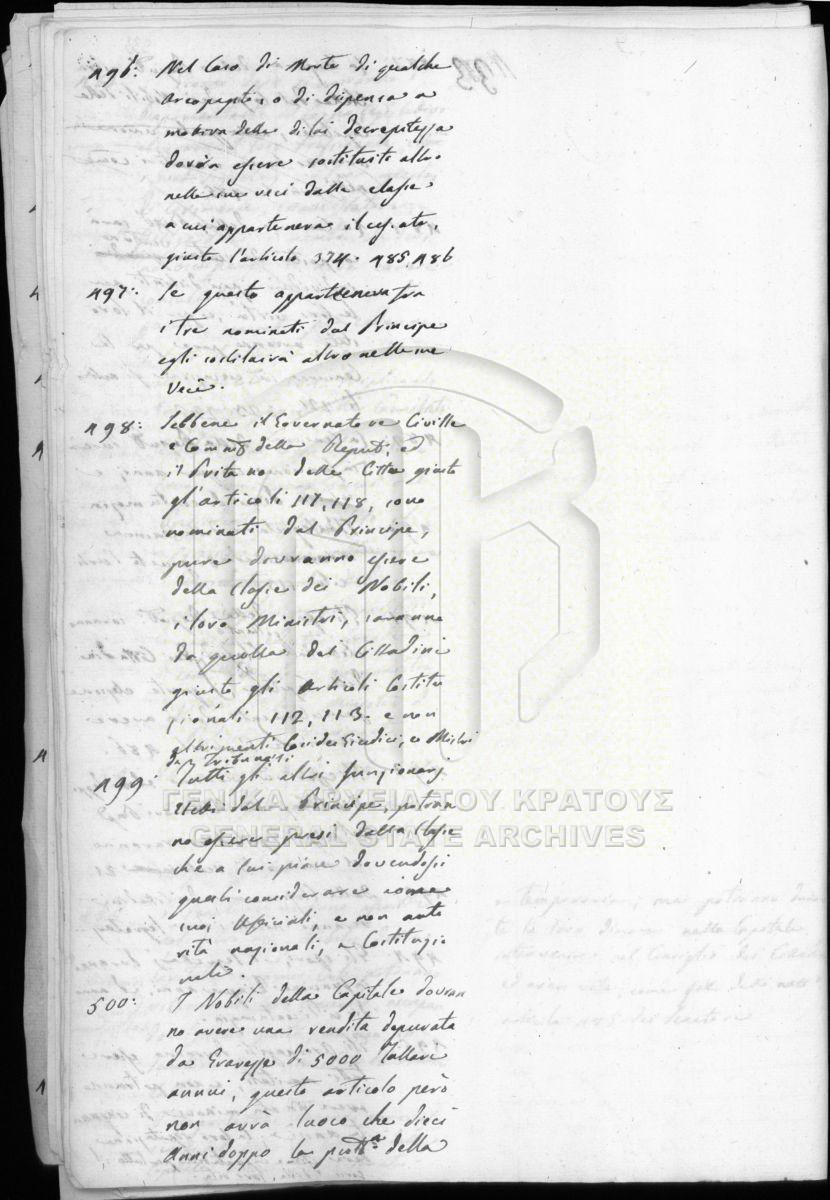 496: Nel Caso di Morte di qualche
Areopagita, o di dispensa a
motivo della di lui decrepitezza
dovrà essere sostituito altro
nelle sue veci dalla classe
a cui apparteneva il cessato,
giusto l'articolo 374. 485. 486
497: Se questo apparteneva fra
i tre nominati dal Principe
egli sostituirà altro nelle sue
Veci.
498: Sebbene il Governatore Civille
e Comm.º della Repub: ed
il Pritano della Citta giusto
gl'articoli 117, 118, sono
nominati dal Principe,
pure dovranno essere
della Classe dei Nobili,
i loro Ministri, saranno
da quella dei Cittadini
giusto gli articoli Costitu
zionali 112, 113. e non
altrimenti Cosi dei Giudici, e Mistri
dei Tribunali
499: Tutti gli altri funzionarj
Eletti dal Principe, potran
no essere presi dalla Classe
che a lui piace dovendosi
questi considerare come
suoi Ufficiali, e non auto
rità nazionali, e Costituzio
nali.
500: I Nobili della Capitale dovran
no avere una rendita depurata
da Gravezze di 5000 Tallari
annui, questo articolo però
non avrà luoco che dieci
anni doppo la della
ΓΕΝΙΚΑ ΑΡΧΕΙΑ ΤΟΥ ΚΡΑΤΟΥΣ
GENERAL STATE ARCHIVES